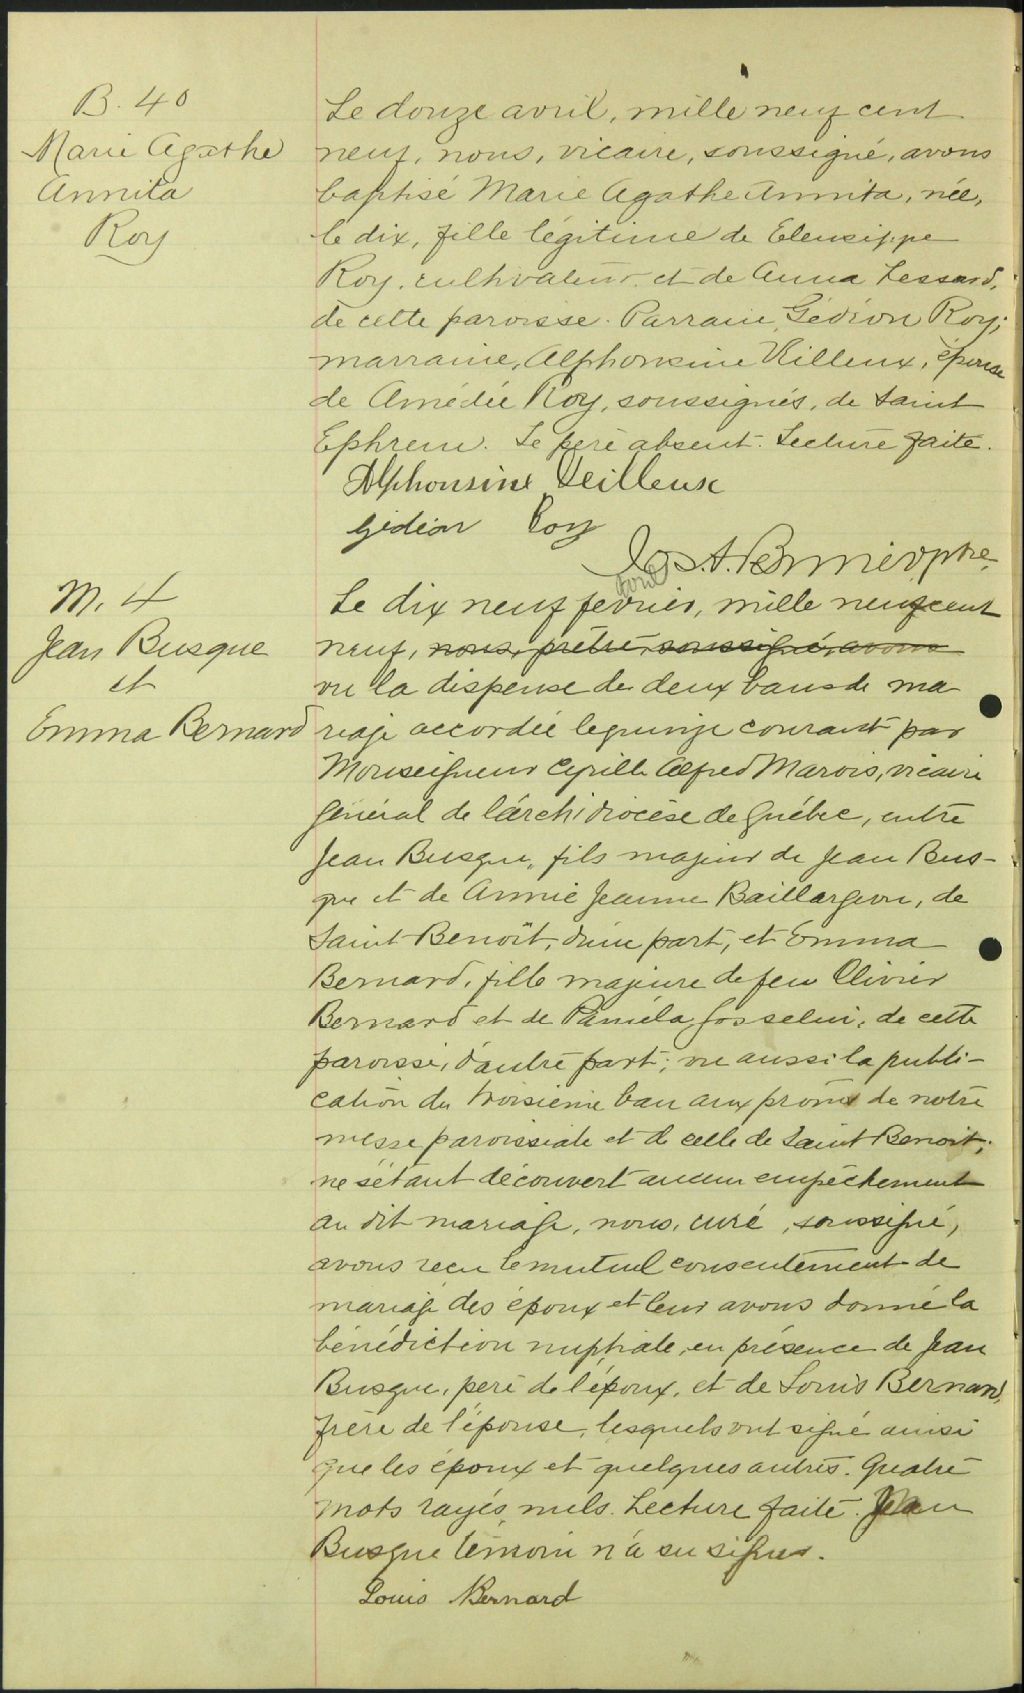 B. 40
Marie Agathe
Annita
Roy
Le douze avril, mille neuf cent
neuf, nous, vicaire, soussigné, avons
baptisé Marie Agathe Annita, née,
le dix, fille légitime de Eleusippe
Roy, cultivateur, et de Anna Lessard,
de cette paroisse. Parrain, Gédéon Roy;
marraine, Alphonsine Veilleux, épouse
de Amédée Roy, soussignés, de Saint
Ephrem. Le père absent. Lecture faite.
Alphonsine Veilleux
Gédéon Roy
Jos. A. Bernier, ptre.
M. 4
Jean Busque
et
Emma Bernard
avril
Le dix neuf fevrier, mille neuf cent
neuf, nous, prêtre, soussigné, avons
vu la dispense de deux bans de ma
riage accordée le quinze courant par
Monseigneur Cyrille Alfred Marois, vicaire
général de l'archidiocèse de Québec, entre
Jean Busque, fils majeur de Jean Bus-
que et de Annie Jeanne Baillargeon, de
Saint-Benoît, d'une part, et Emma
Bernard, fille majeure de feu Olivier
Bernard et de Paméla Gosselin, de cette
paroisse, d'autre part; vu aussi la publi-
cation du troisième ban aux prones de notre
messe paroissiale et de celle de Saint Benoit;
ne s'étant découvert aucun empêchement
au dit mariage, nous, curé, soussigné,
avons reçu le mutuel consentement de
mariage des époux et leur avons donné la
bénédiction nuptiale, en présence de Jean
Busque, père de l'époux, et de Louis Bernard,
frère de l'épouse, lesquels ont signé ainsi
que les époux et quelques autres. Quatre
mots rayés nuls. Lecture faite. Jean
Busque témoin n'a su signer.
Louis Bernard